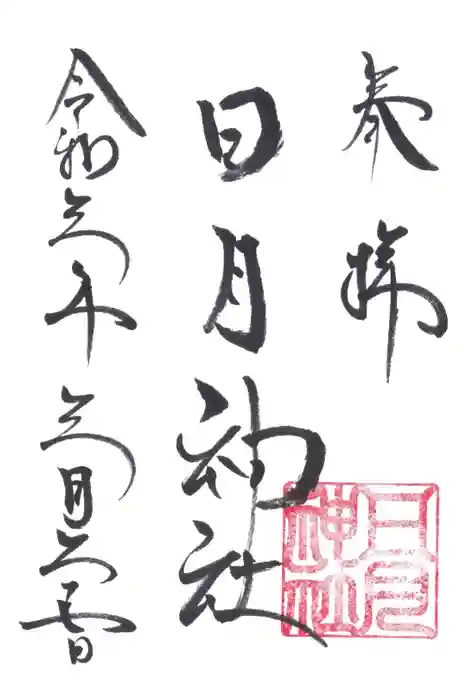 奉拝
日月神社
令和六年六月日
日月
神社